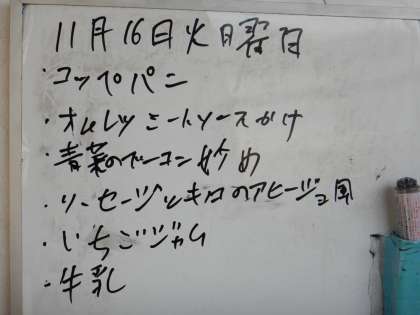 11月16日火曜日
・コッペパン
・オムレツミートソースかけ
・青菜のベーコン炒め
・ソーセージとキノコのアヒージョ風
・いちごジャム
・牛乳